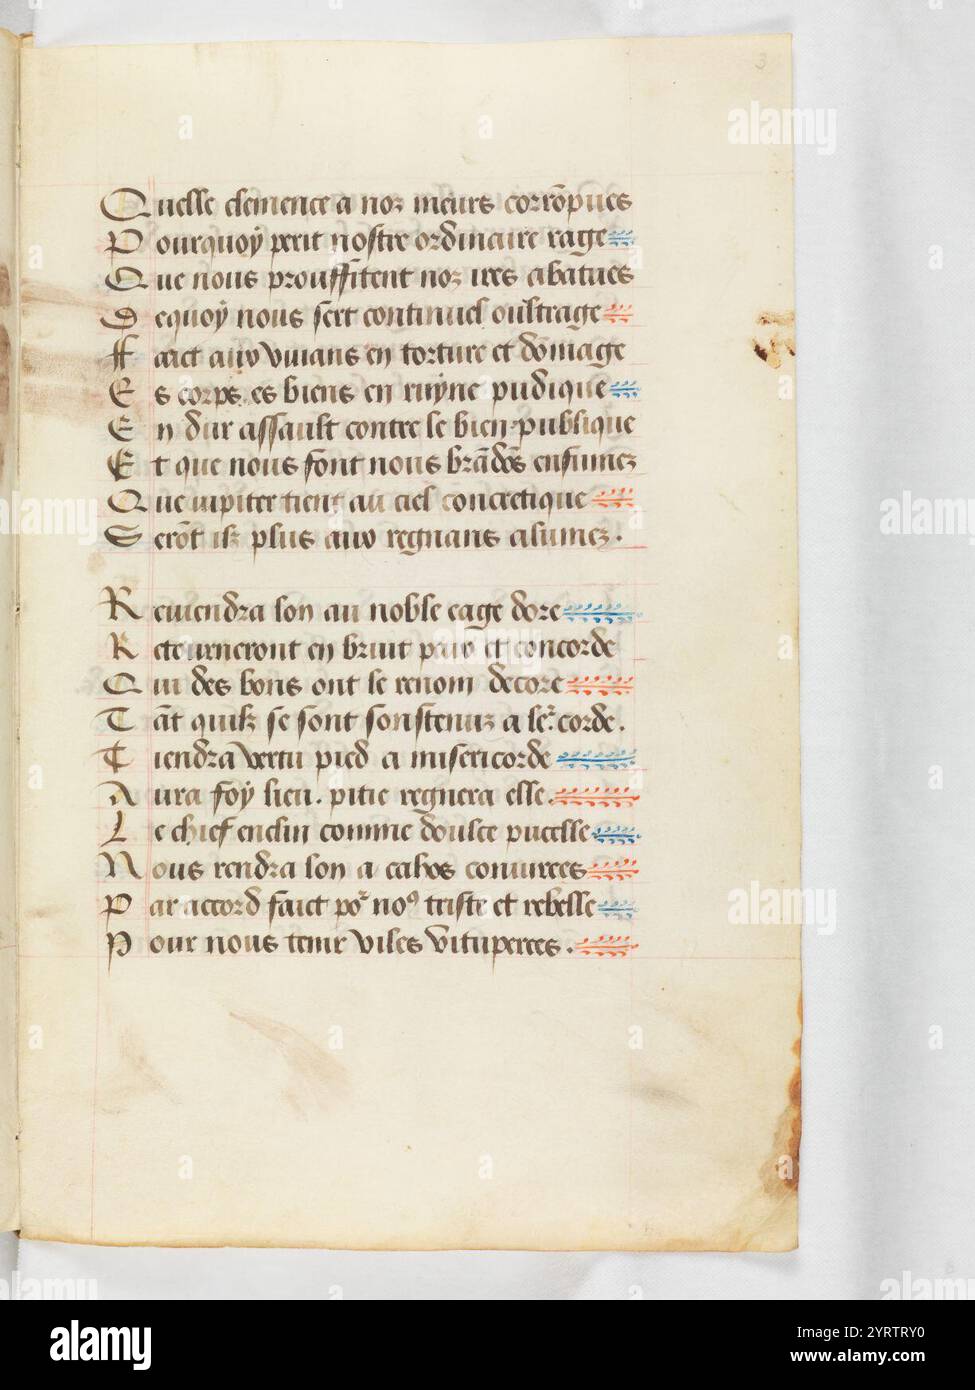 3
Quelle clemence a noz meurs corrõpues
Pourquoy perit nostre ordinaire rage
Que nous prouffitent noz ires abatues
Dequoy nous sert continuel oultrage
Faict aux viuans en torture et dõmage
Es corps. es biens en ruyne pudique
En dur assault contre le bien publique
Et que nous font nous brãdõs enfumez
Que iupiter tient au ciel concretique
Serõt ilz plus aux regnans alumez.
Reuiendra lon au noble eage dore
Retourneront en bruit paix et concorde
Qui des bons ont le renom decore
Tãt quilz se sont soustenuz a le² corde.
Tiendra vertu pied a misericorde
Aura foy lieu. pitie regnera elle.
Le chief enclin comme doulce pucelle
Nous rendra lon a cahos coniurees
Par accord faict po² noꝰ triste et rebelle
Pour nous tenir viles vituperees.
alamy
Image ID: 2YRTRY0
www.alamy.com